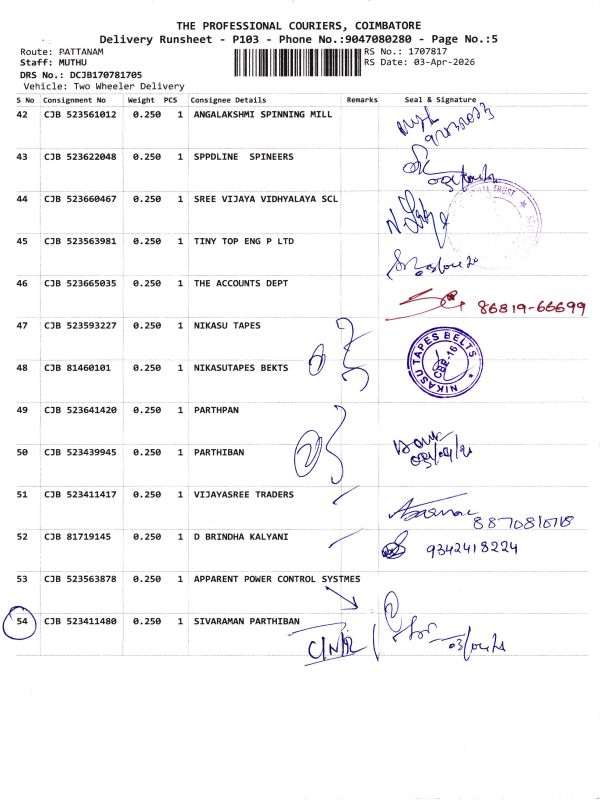 THE PROFESSIONAL COURIERS, COIMBATORE
Delivery Runsheet - P103 - Phone No.:9047080280 - Page No.:5
Route: PATTANAM RS No.: 1707817
Staff: MUTHU RS Date: 03-Apr-2026
DRS No.: DCJB170781705
Vehicle: Two Wheeler Delivery
S No Consignment No Weight PCS Consignee Details Remarks Seal & Signature
42 CJB 523561012 0.250 1 ANGALAKSHMI SPINNING MILL
43 CJB 523622048 0.250 1 SPPDLINE SPINEERS
44 CJB 523660467 0.250 1 SREE VIJAYA VIDHYALAYA SCL
45 CJB 523563981 0.250 1 TINY TOP ENG P LTD
46 CJB 523665035 0.250 1 THE ACCOUNTS DEPT 86819-66699
47 CJB 523593227 0.250 1 NIKASU TAPES
48 CJB 81460101 0.250 1 NIKASUTAPES BEKTS NIKASU TAPES BELTS CBE-16
49 CJB 523641420 0.250 1 PARTHPAN
50 CJB 523439945 0.250 1 PARTHIBAN
51 CJB 523411417 0.250 1 VIJAYASREE TRADERS
52 CJB 81719145 0.250 1 D BRINDHA KALYANI 9342418224
53 CJB 523563878 0.250 1 APPARENT POWER CONTROL SYSTMES
54 CJB 523411480 0.250 1 SIVARAMAN PARTHIBAN